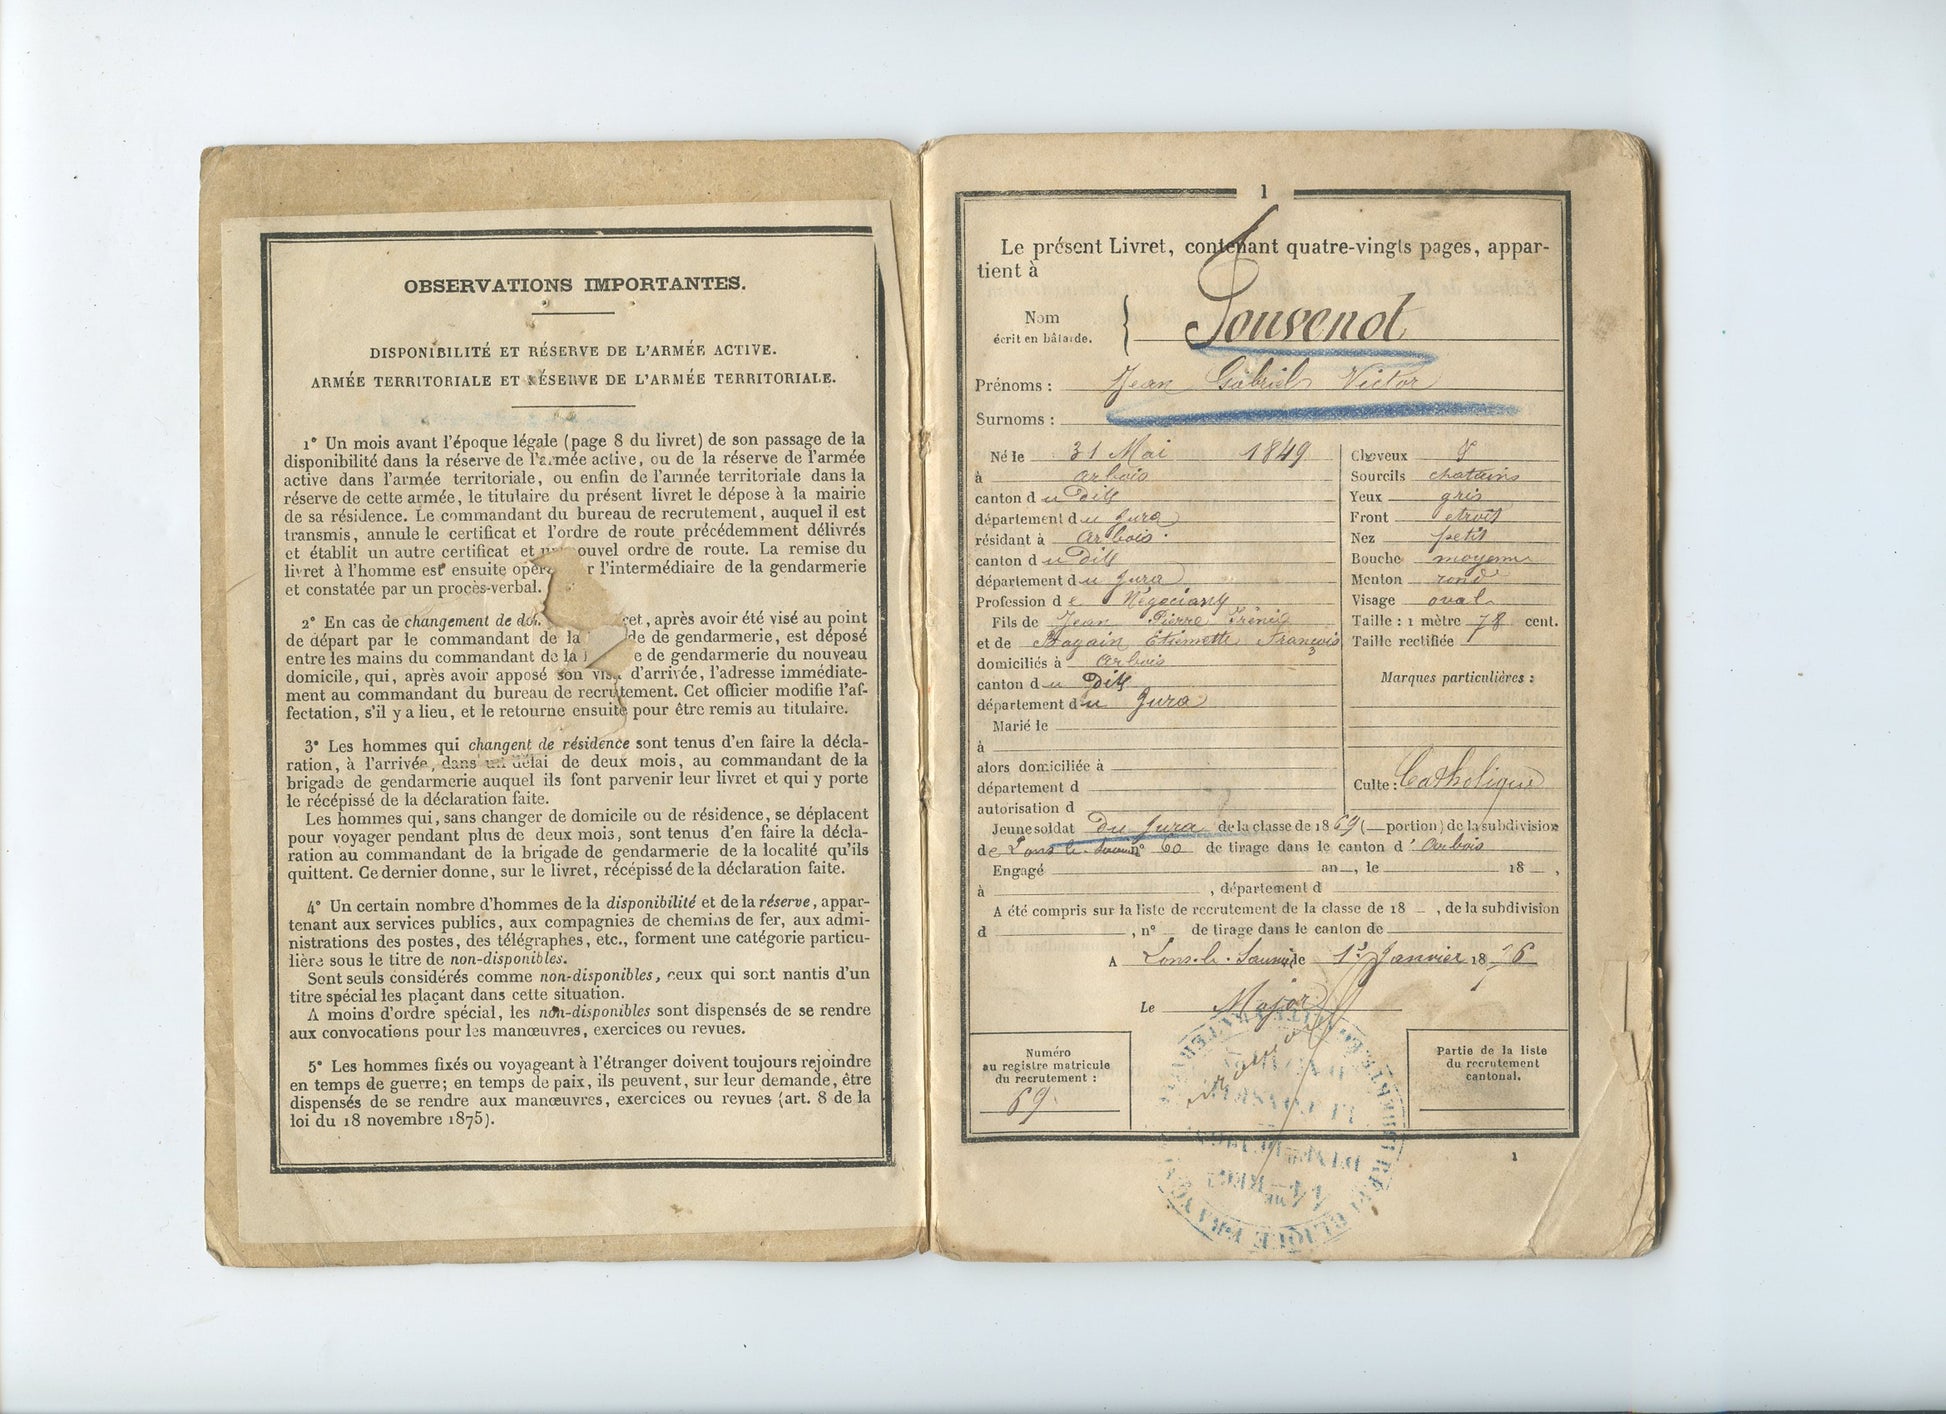 OBSERVATIONS IMPORTANTES.
DISPONIBILITÉ ET RÉSERVE DE L'ARMÉE ACTIVE.
ARMÉE TERRITORIALE ET RÉSERVE DE L'ARMÉE TERRITORIALE.
1° Un mois avant l'époque légale (page 8 du livret) de son passage de la
disponibilité dans la réserve de l'armée active, ou de la réserve de l'armée
active dans l'armée territoriale, ou enfin de l'armée territoriale dans la
réserve de cette armée, le titulaire du présent livret le dépose à la mairie
de sa résidence. Le commandant du bureau de recrutement, auquel il est
transmis, annule le certificat et l'ordre de route précédemment délivrés
et établit un autre certificat et un nouvel ordre de route. La remise du
livret à l'homme est ensuite opér r l'intermédiaire de la gendarmerie
et constatée par un procès-verbal.
2° En cas de changement de do ret, après avoir été visé au point
de départ par le commandant de la de de gendarmerie, est déposé
entre les mains du commandant de la e de gendarmerie du nouveau
domicile, qui, après avoir apposé son visa d'arrivée, l'adresse immédiate-
ment au commandant du bureau de recrutement. Cet officier modifie l'af-
fectation, s'il y a lieu, et le retourne ensuite pour être remis au titulaire.
3° Les hommes qui changent de résidence sont tenus d'en faire la décla-
ration, à l'arrivée, dans un délai de deux mois, au commandant de la
brigade de gendarmerie auquel ils font parvenir leur livret et qui y porte
le récépissé de la déclaration faite.
Les hommes qui, sans changer de domicile ou de résidence, se déplacent
pour voyager pendant plus de deux mois, sont tenus d'en faire la décla-
ration au commandant de la brigade de gendarmerie de la localité qu'ils
quittent. Ce dernier donne, sur le livret, récépissé de la déclaration faite.
4° Un certain nombre d'hommes de la disponibilité et de la réserve, appar-
tenant aux services publics, aux compagnies de chemins de fer, aux admi-
nistrations des postes, des télégraphes, etc., forment une catégorie particu-
lière sous le titre de non-disponibles.
Sont seuls considérés comme non-disponibles, ceux qui sont nantis d'un
titre spécial les plaçant dans cette situation.
A moins d'ordre spécial, les non-disponibles sont dispensés de se rendre
aux convocations pour les manœuvres, exercices ou revues.
5° Les hommes fixés ou voyageant à l'étranger doivent toujours rejoindre
en temps de guerre; en temps de paix, ils peuvent, sur leur demande, être
dispensés de se rendre aux manœuvres, exercices ou revues (art. 8 de la
loi du 18 novembre 1875).
1
Le présent Livret, contenant quatre-vingts pages, appar-
tient à
Nom
écrit en bâtarde. } Jouvenot
Prénoms : Jean Gabriel Victor
Surnoms :
Né le 31 Mai 1849
à arbois
canton du Dit
département du Jura
résidant à arbois
canton du Dit
département du Jura
Profession de Négociant
Fils de Jean Pierre
et de Etiennette François
domiciliés à arbois
canton du Dit
département du Jura
Marié le
à
alors domiciliée à
département d
autorisation d
Cheveux
Sourcils chatains
Yeux gris
Front etroit
Nez petit
Bouche moyenne
Menton rond
Visage oval
Taille : 1 mètre 78 cent.
Taille rectifiée
Marques particulières :
Culte : Catholique
Jeune soldat du Jura de la classe de 1869 ( portion) de la subdivision
de Lons-le-Saunier n° 60 de tirage dans le canton d'arbois
Engagé an , le 18 ,
à , département d
A été compris sur la liste de recrutement de la classe de 18 , de la subdivision
d , n° de tirage dans le canton de
A Lons-le-Saunier le 1er Janvier 1876
Le Major
Numéro
au registre matricule
du recrutement :
69
Partie de la liste
du recrutement
cantonal.
1